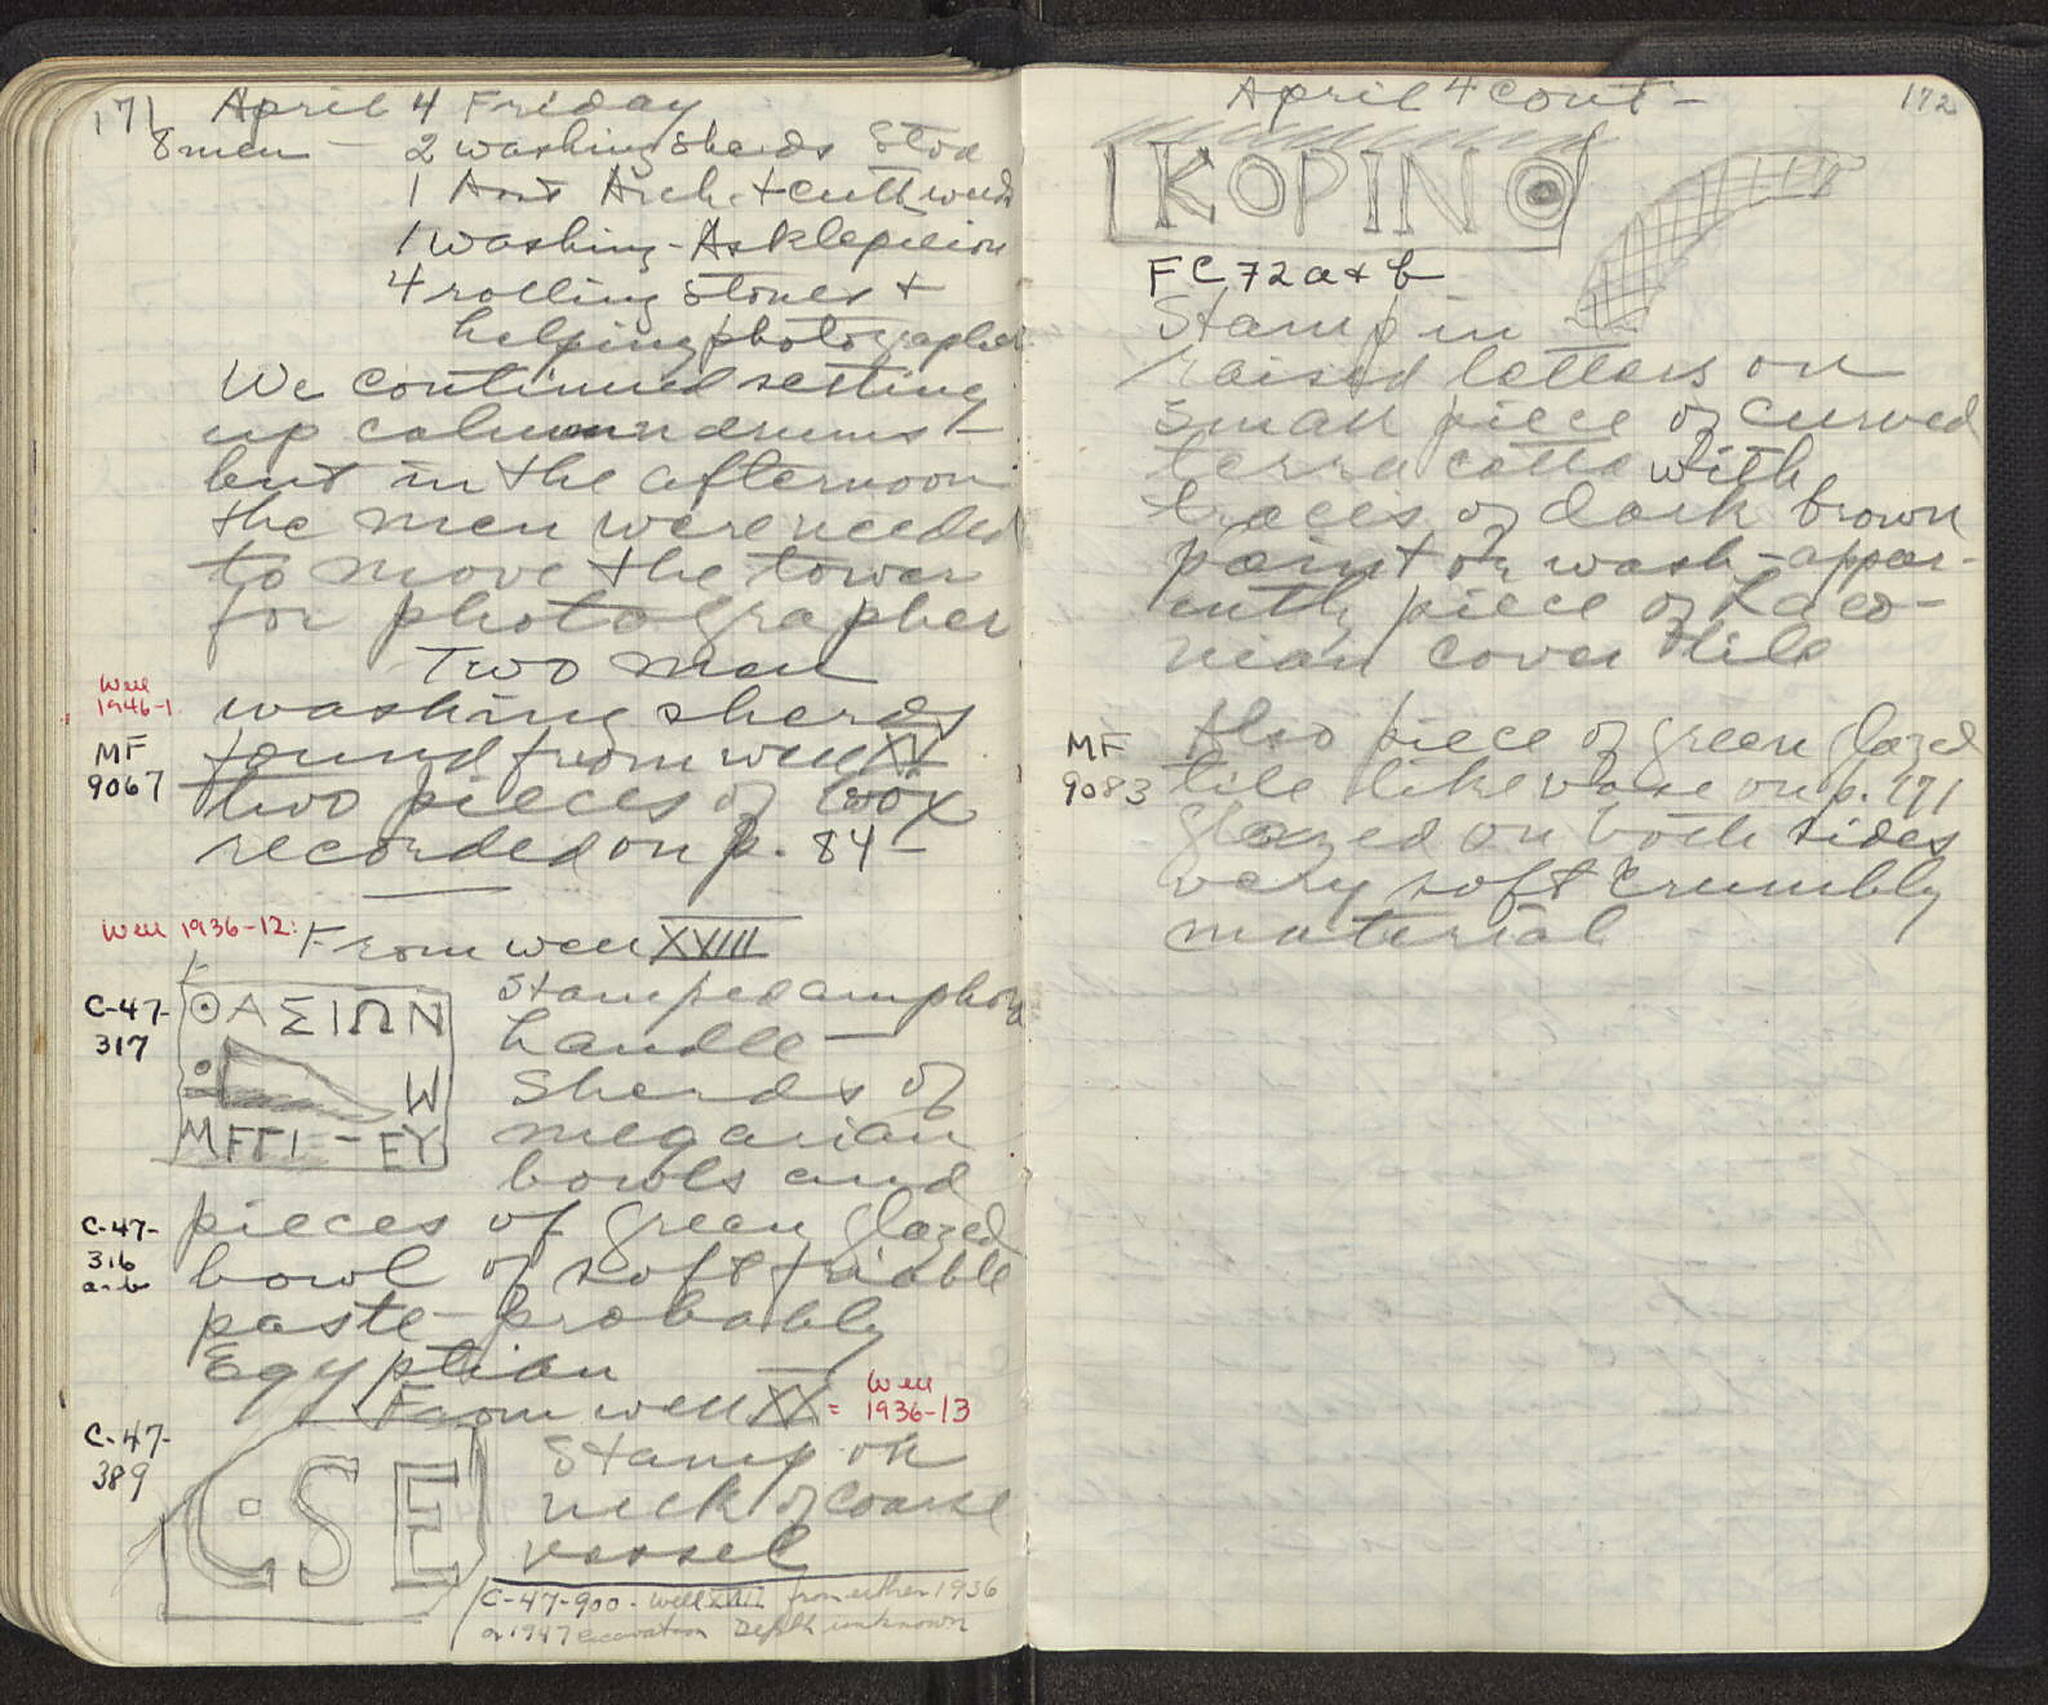 171 April 4 Friday
8 men — 2 washing sherds Stoa
1 Ant Arch. + cutt weeds
1 washing - Asklepieion
4 rolling stones +
helping photographer
We continued setting
up column drums -
but in the afternoon
the men were needed
to move the tower
for photographer
Two men
Well
1946-1
washing sherds
MF
9067
found from well XV
two pieces of wax
recorded on p. 84 -
Well 1936-12:
From well XVIII
C-47-
317
ΘΑΣΙΩΝ
W
ΜΕΓΙ - ΕΥ
Stamped amphora
handle —
Sherds of
megarian
bowls and
C-47-
316
a-b
pieces of green glazed
bowl of soft friable
paste - probably
Egyptian
From well XX = Well
1936-13
C-47-
389
CSE
Stamp on
neck of coarse
vessel
C-47-900 - Well XVIII from either 1936
or 1947 excavation Depth unknown
April 4 cont - 172
KOPINΘ
FC 72 a + b
Stamp in
raised letters on
small piece of curved
terra cotta with
traces of dark brown
paint or wash - appar-
ently piece of Laco-
nian cover tile
MF
9083
Also piece of green glazed
tile like vase on p. 171
Glazed on both sides
very soft crumbly
material